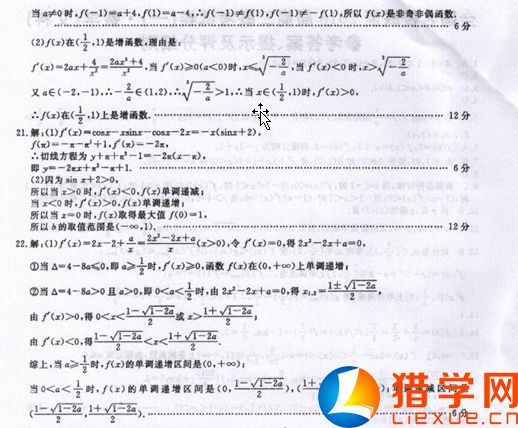 当 a≠0 时,f(-1)=a+4,f(1)=a-4,∴f(-1)≠f(1),f(-1)≠-f(1),所以 f(x)是非奇非偶函数.
6 分
(2)f(x)在(1/2,1)是增函数,理由是:
f′(x)=2ax+4/x²=(2ax³+4)/x²,当 f′(x)≥0(a<0)时,x≤∛(-2/a),当 f′(x)<0 时,x>∛(-2/a),
又 a∈(-2,-1),∴-2/a∈(1,2),∴∛(-2/a)>1,∴当 x∈(1/2,1)时,f′(x)>0,
∴f(x)在(1/2,1)上是增函数. 12 分
21.解:(1)f′(x)=cosx-xsinx-cosx-2x=-x(sinx+2),
f(π)=-π-π²+1,f′(π)=-2π,
∴切线方程为 y+π+π²-1=-2π(x-π),
即 y=-2πx+π²-π+1. 6 分
(2)因为 sin x+2>0,
所以当 x>0 时,f′(x)<0,f(x)单调递减;
当 x<0 时,f′(x)>0,f(x)单调递增;
所以当 x=0 时,f(x)取得最大值 f(0)=1,
所以 b 的取值范围是(-∞,1). 12 分
22.解:(1)f′(x)=2x-2+a/x=(2x²-2x+a)/x(x>0),令 f′(x)=0,得 2x²-2x+a=0,
①当 Δ=4-8a≤0,即 a≥1/2时,f′(x)≥0,函数 f(x)在(0,+∞)上单调递增;
②当 Δ=4-8a>0 且 a>0,即 0<a<1/2时,由 2x²-2x+a=0,得 x₁,₂=(1±√(1-2a))/2,
由 f′(x)>0,得 0<x<(1-√(1-2a))/2或 x>(1+√(1-2a))/2;
由 f′(x)<0,得(1-√(1-2a))/2<x<(1+√(1-2a))/2.
综上,当 a≥1/2时,f(x)的单调递增区间是(0,+∞);
当 0<a<1/2时,f(x)的单调递增区间是(0,(1-√(1-2a))/2),((1+√(1-2a))/2
((1-√(1-2a))/2,(1+√(1-2a))/2). 6 分
猎学网
liexue.cn